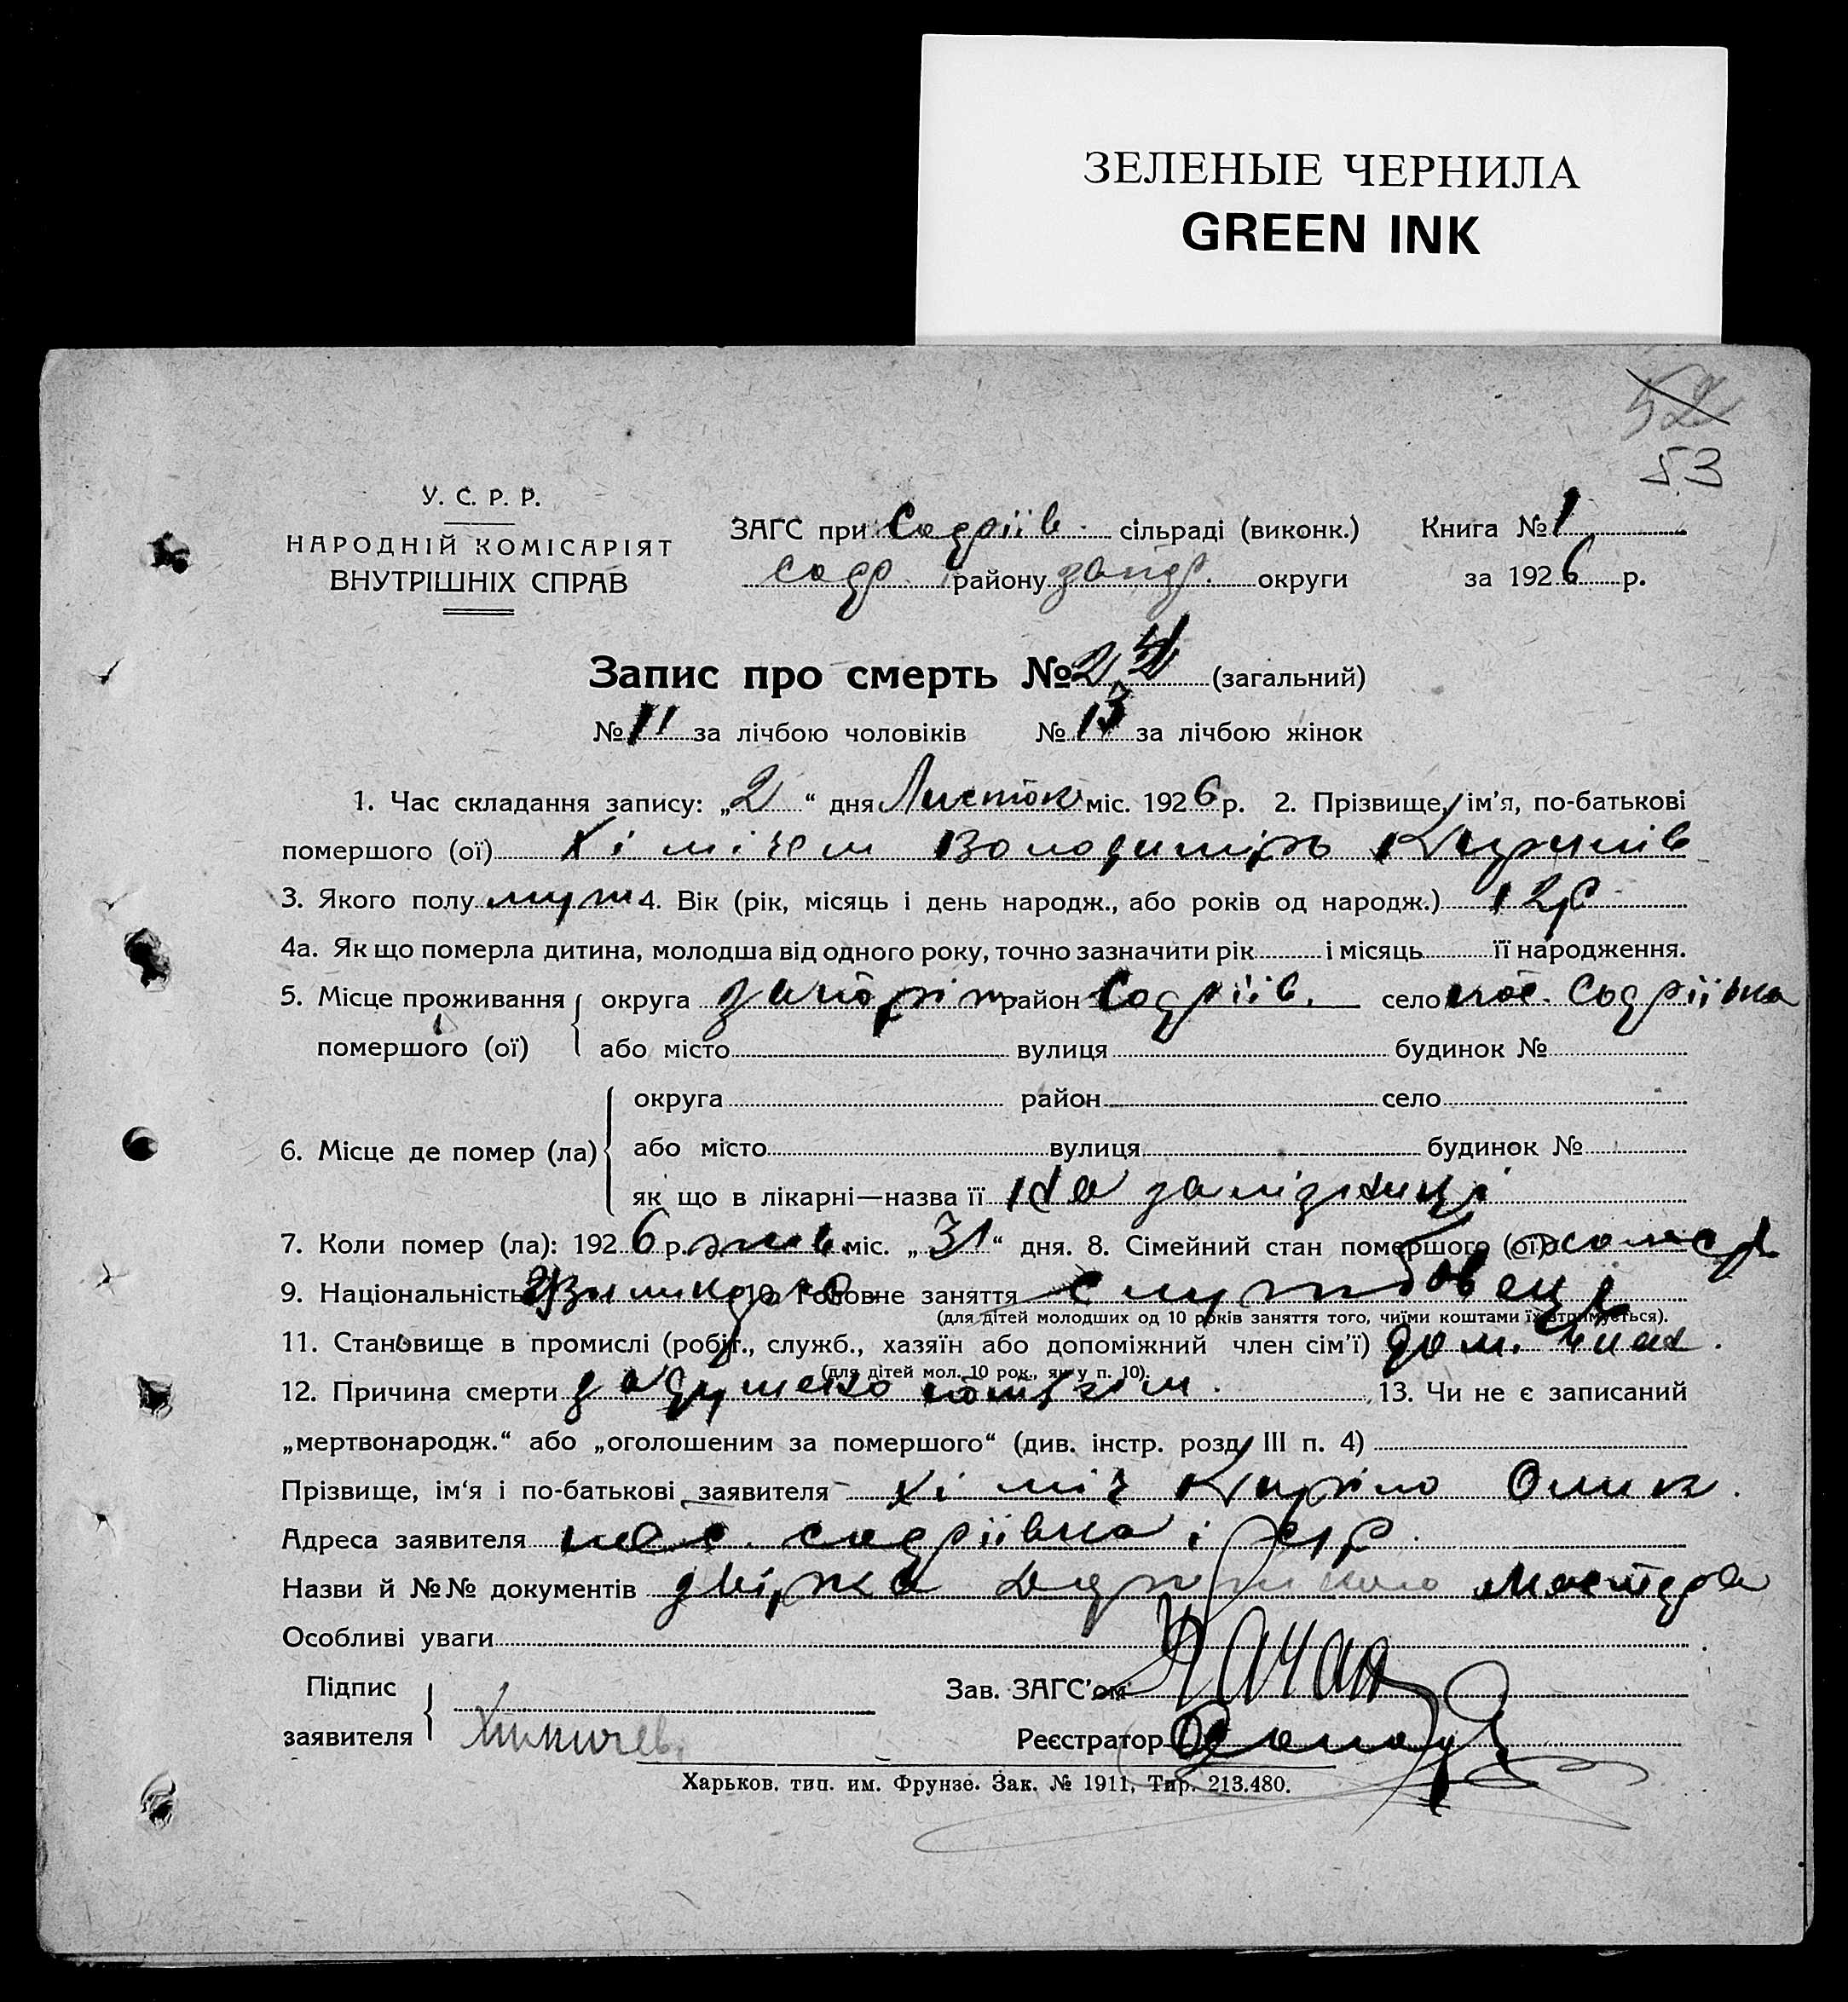 ЗЕЛЕНЫЕ ЧЕРНИЛА
GREEN INK
52
53
У. С. Р. Р.
НАРОДНІЙ КОМІСАРІЯТ
ВНУТРІШНІХ СПРАВ
ЗАГС при Содріїв. сільраді (виконк.) Книга № 1
Содр. району запор. округи за 1926 р.
Запис про смерть № 24 (загальний)
№ 11 за лічбою чоловіків № 13 за лічбою жінок
1. Час складання запису: „2“ дня Листоп міс. 1926 р. 2. Прізвище, ім’я, по-батькові
помершого (ої) Хімічем Володимірь Кирилів
3. Якого полу муж 4. Вік (рік, місяць і день народж., або років од народж.) 12 р
4а. Як що померла дитина, молодша від одного року, точно зазначити рік і місяць її народження.
5. Місце проживання округа запоріж район Содріїв. село пос. Содріївка
помершого (ої) або місто вулиця будинок №
округа район село
6. Місце де помер (ла) або місто вулиця будинок №
як що в лікарні—назва її На залізниці
7. Коли помер (ла): 1926 р. міс. „31“ дня. 8. Сімейний стан помершого (ої) холост
9. Національність 10. Головне заняття службовець
(для дітей молодших од 10 років заняття того, чиїми коштами їх втримується).
11. Становище в промислі (робіт., служб., хазяїн або допоміжний член сім’ї) дом. член.
(для дітей мол. 10 рок., як у п. 10).
12. Причина смерти задушено потягом. 13. Чи не є записаний
„мертвонародж.“ або „оголошеним за помершого“ (див. інстр. розд. III п. 4)
Прізвище, ім‘я і по-батькові заявителя Хіміч Кирило Олик.
Адреса заявителя пос. содріївка
Назви й №№ документів
Особливі уваги
Підпис Зав. ЗАГС’ом
заявителя Реєстратор
Харьков. тип. им. Фрунзе. Зак. № 1911, Тир. 213.480.